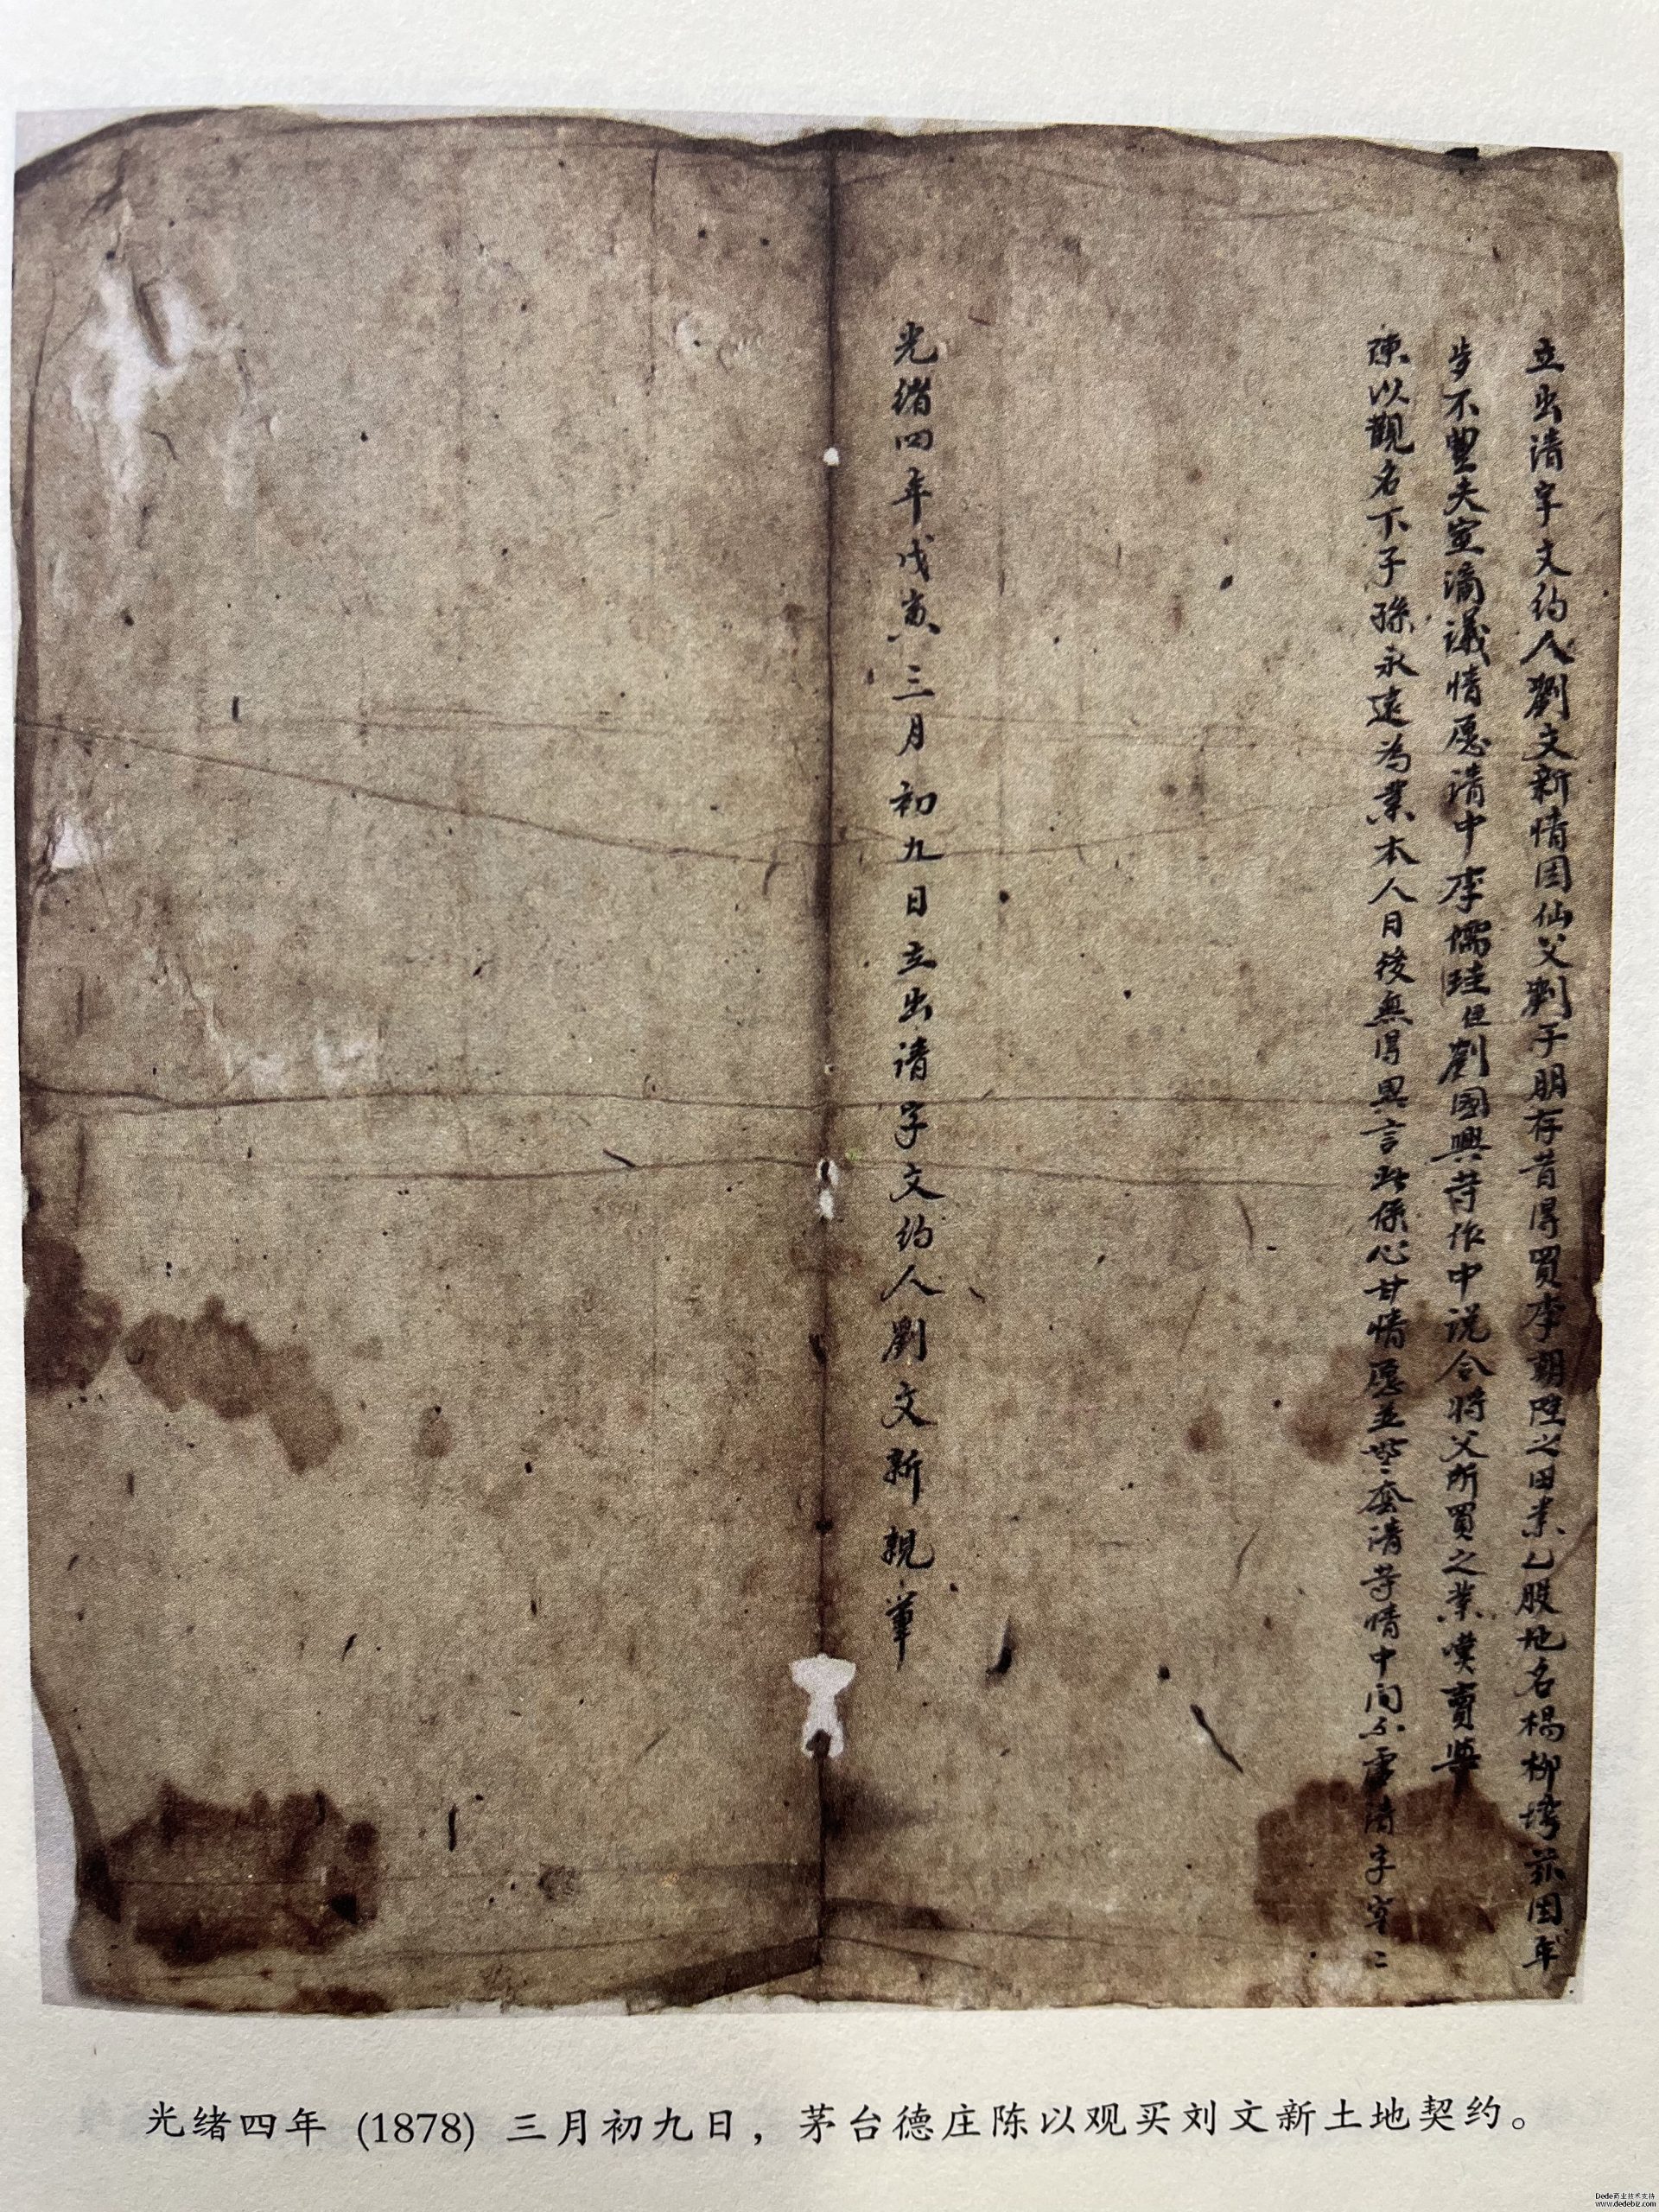 立出清字文約人劉文新情因仙父劉子朋存昔得買李朝陞之田業乙股地名楊柳塆茲因年
步不豐夫室滴議情愿清中李儒珪劉國興等作中说合將父所買之業嘆賣與
陳以觀名下子孫永遠為業本人日後無得異言此係心甘情愿並無套清等情中间不虛清字
光緒四年戊寅三月初九日立出请字文約人劉文新親筆
光绪四年 (1878) 三月初九日，茅台德庄陈以观买刘文新土地契约。
Dede药业技术支持
www.dedebiz.com